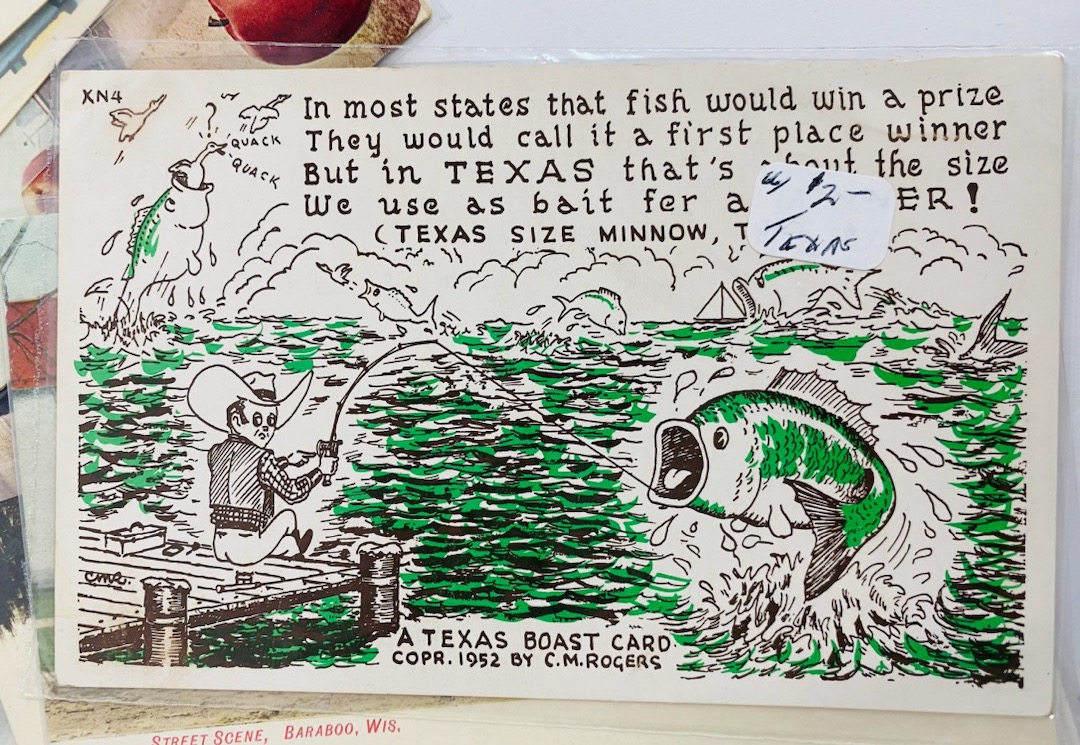 XN4
?
QUACK
QUACK
In most states that fish would win a prize
They would call it a first place winner
But in TEXAS that's about the size
We use as bait fer a ER!
(TEXAS SIZE MINNOW, T
w/ $2-
TEXAS
CMR.
A TEXAS BOAST CARD
COPR. 1952 BY C.M.ROGERS
STREET SCENE, BARABOO, WIS.